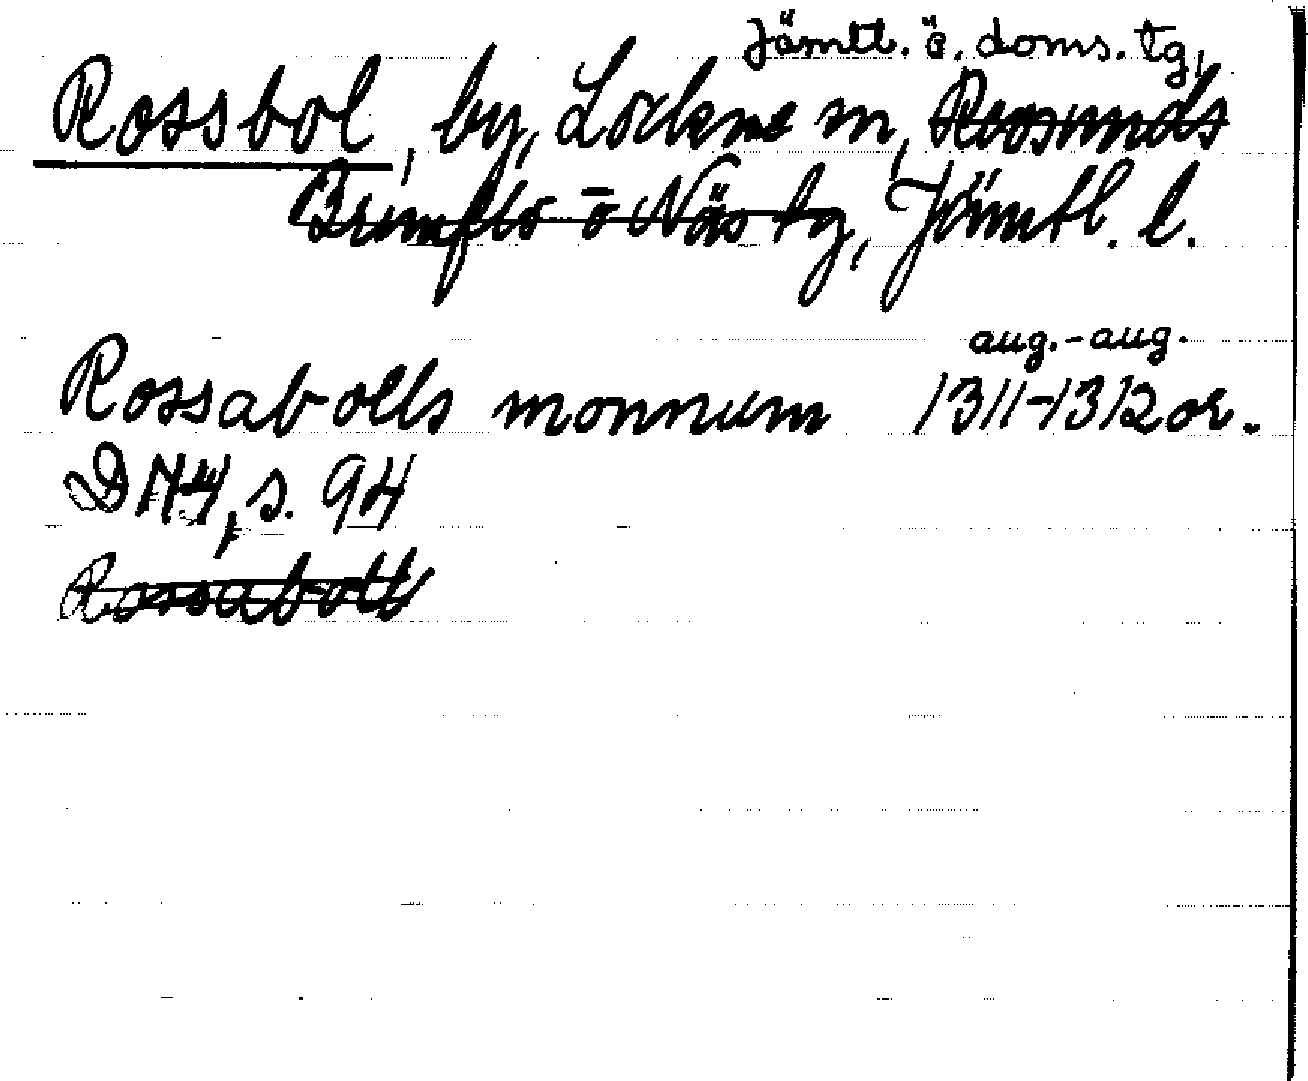 Jämtl. ö. doms. tg,
Rossbol, by, Lockne sn, Revsunds
Brunflo o Näs tg, Jämtl. l.
aug.-aug.
Rossabolls monnum 1311-1312 or.
DN 4, s. 94
Rossaboll